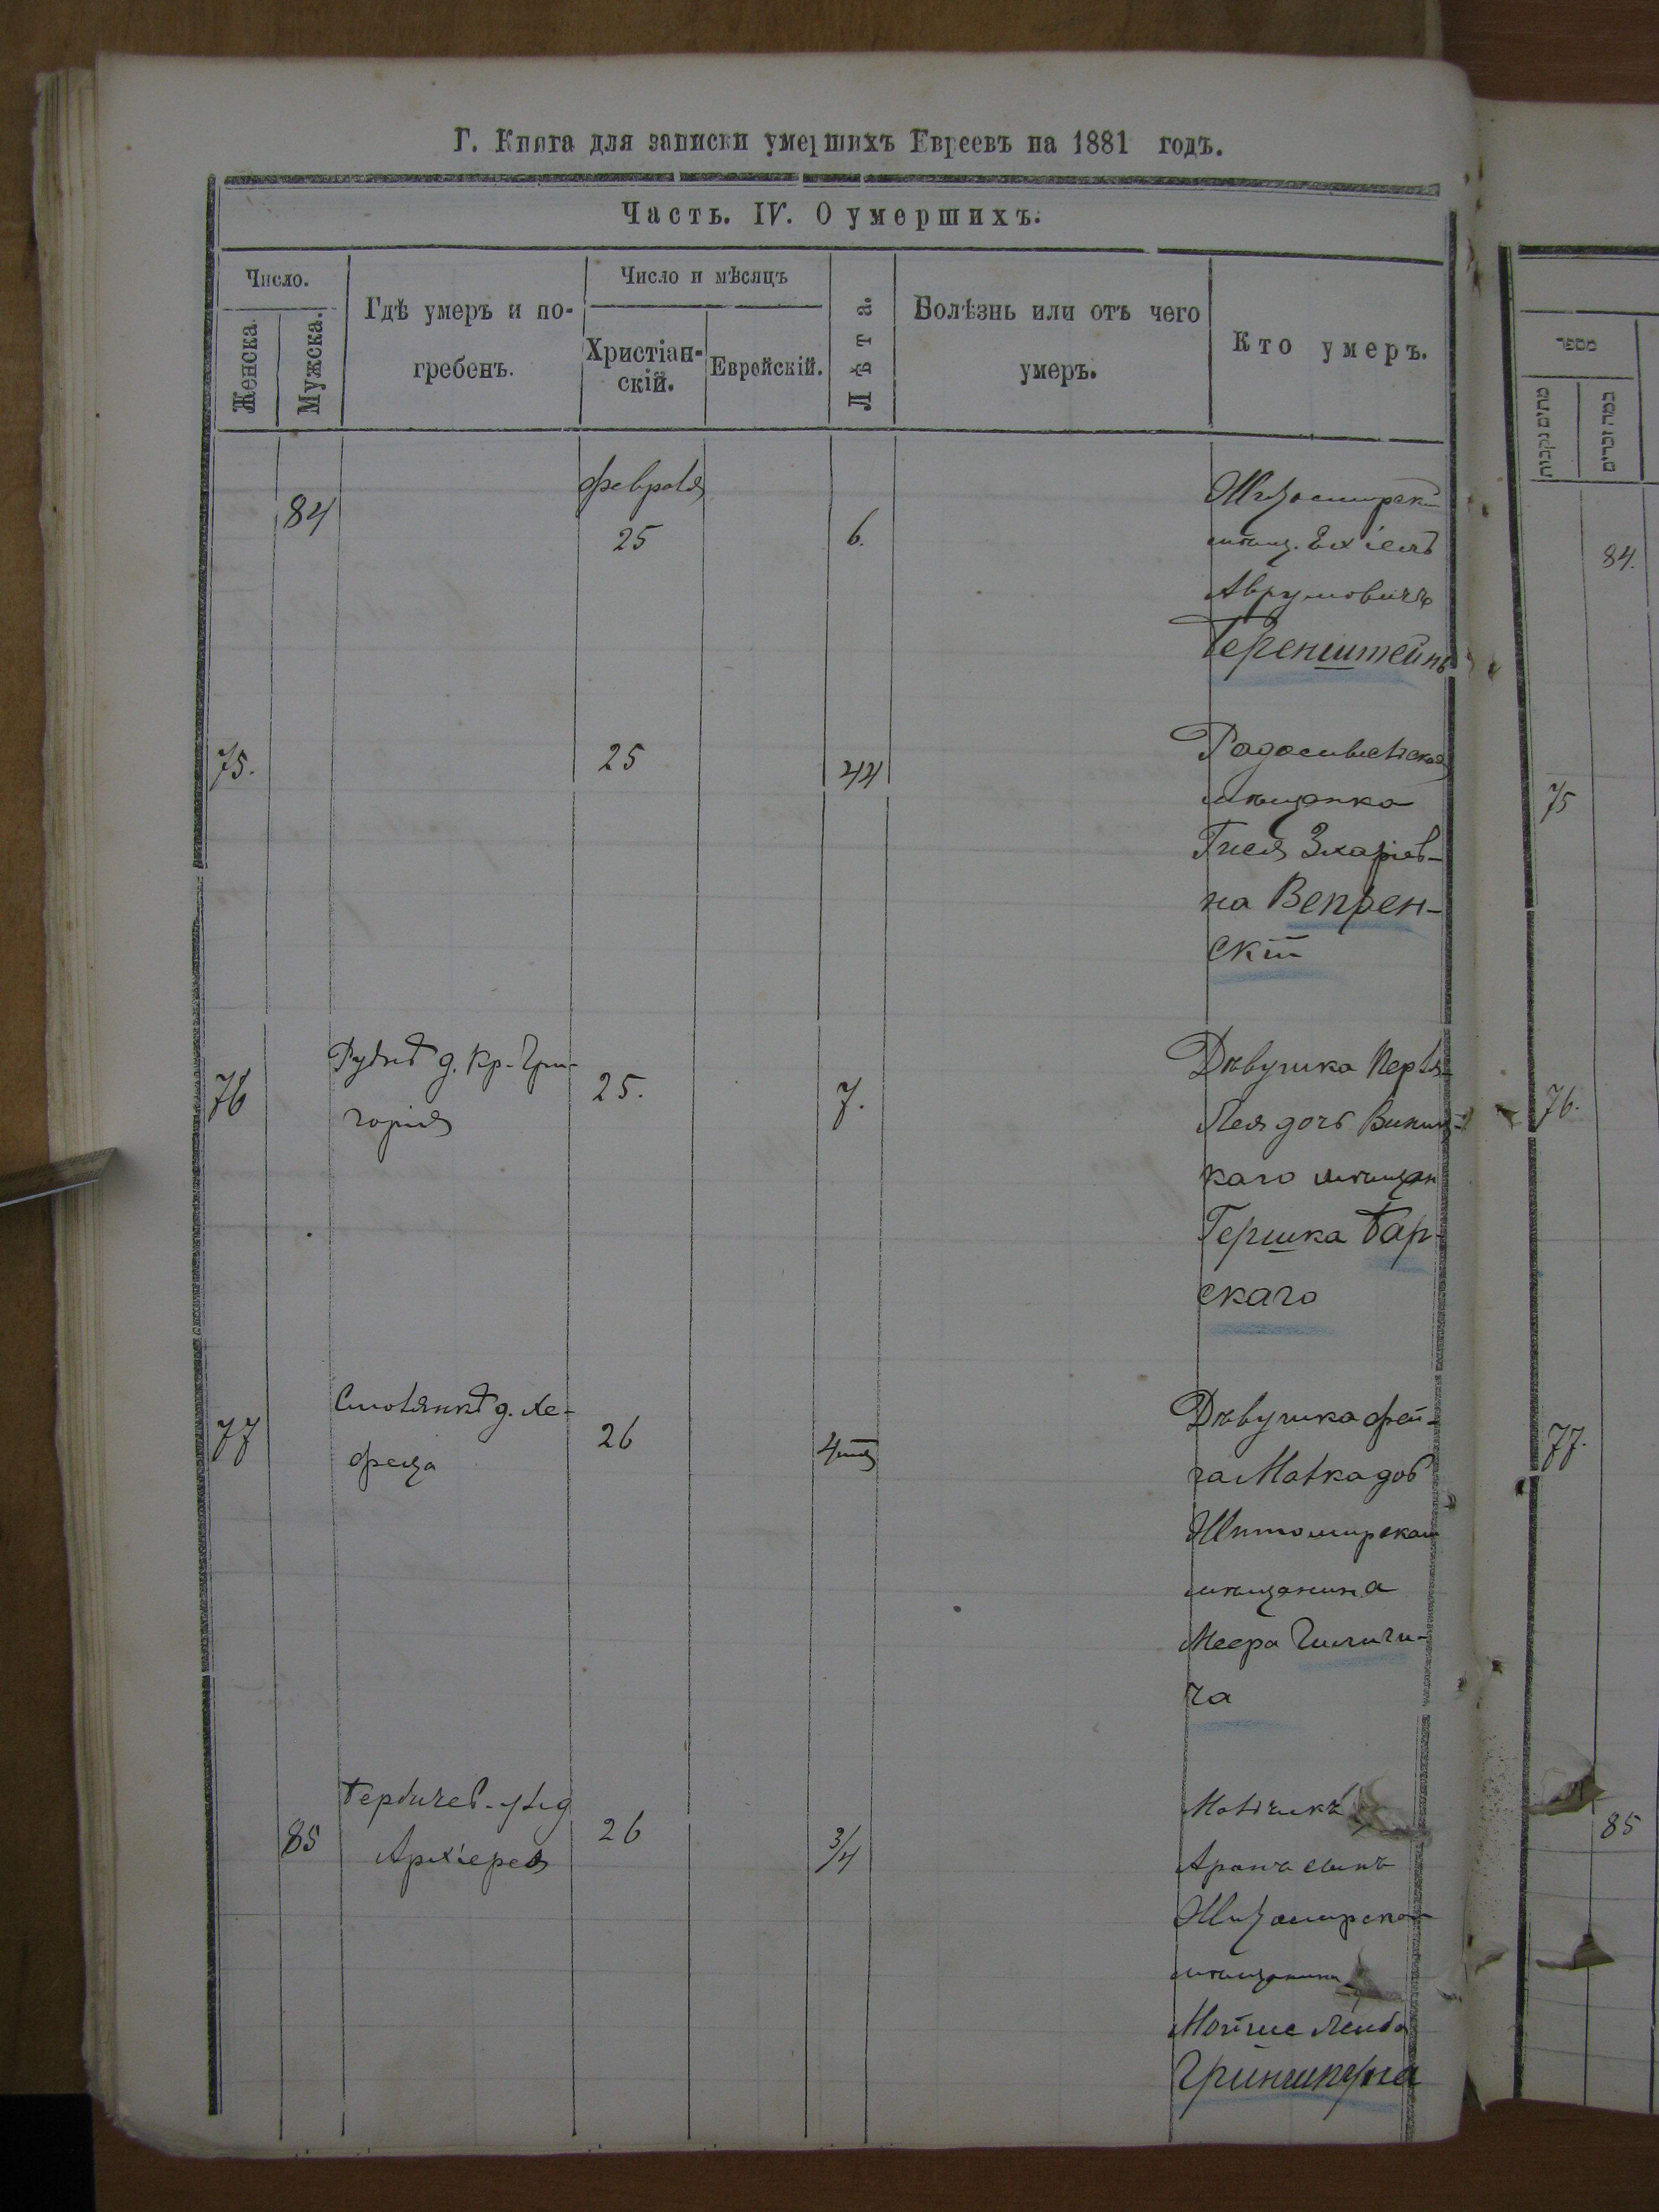 Г. Книга для записки умершихъ Евреевъ на 1881 годъ.
Часть. IV. О умершихъ.
Число.
Женска
Мужска.
Гдѣ умеръ и по-
гребенъ.
Число и мѣсяцъ
Христіан-
скій.
Еврейскій.
Лѣта.
Болѣзнь или отъ чего
умеръ.
Кто умеръ.
84
февраля
25
6.
Житомирскій
мѣщ. Ехіель
Аврумовичъ
Беренштейнъ
75.
25
44
Радомысльская
мѣщанка
Гися Зхаріев-
на Вепрен-
скій
76
Рудня д. Кр. Гри-
горія
25.
7.
Дѣвушка Перля
Лея дочь Винниц-
каго мѣщан
Гершка Бар-
скаго
77
Смолянкѣ д.
26
4
Дѣвушка Фей-
га Малка доч
Житомирскаго
мѣщанина
Меера
ча
85
Бердичев. улиц
Архіерея
26
3/4
Мальчикъ
Аронъ сынъ
Житомирскаго
мѣщанина
Мойше Лейба
Гриншпуна
מספר
מתים נקבות
כמה זכרים
84.
75
76.
77.
85